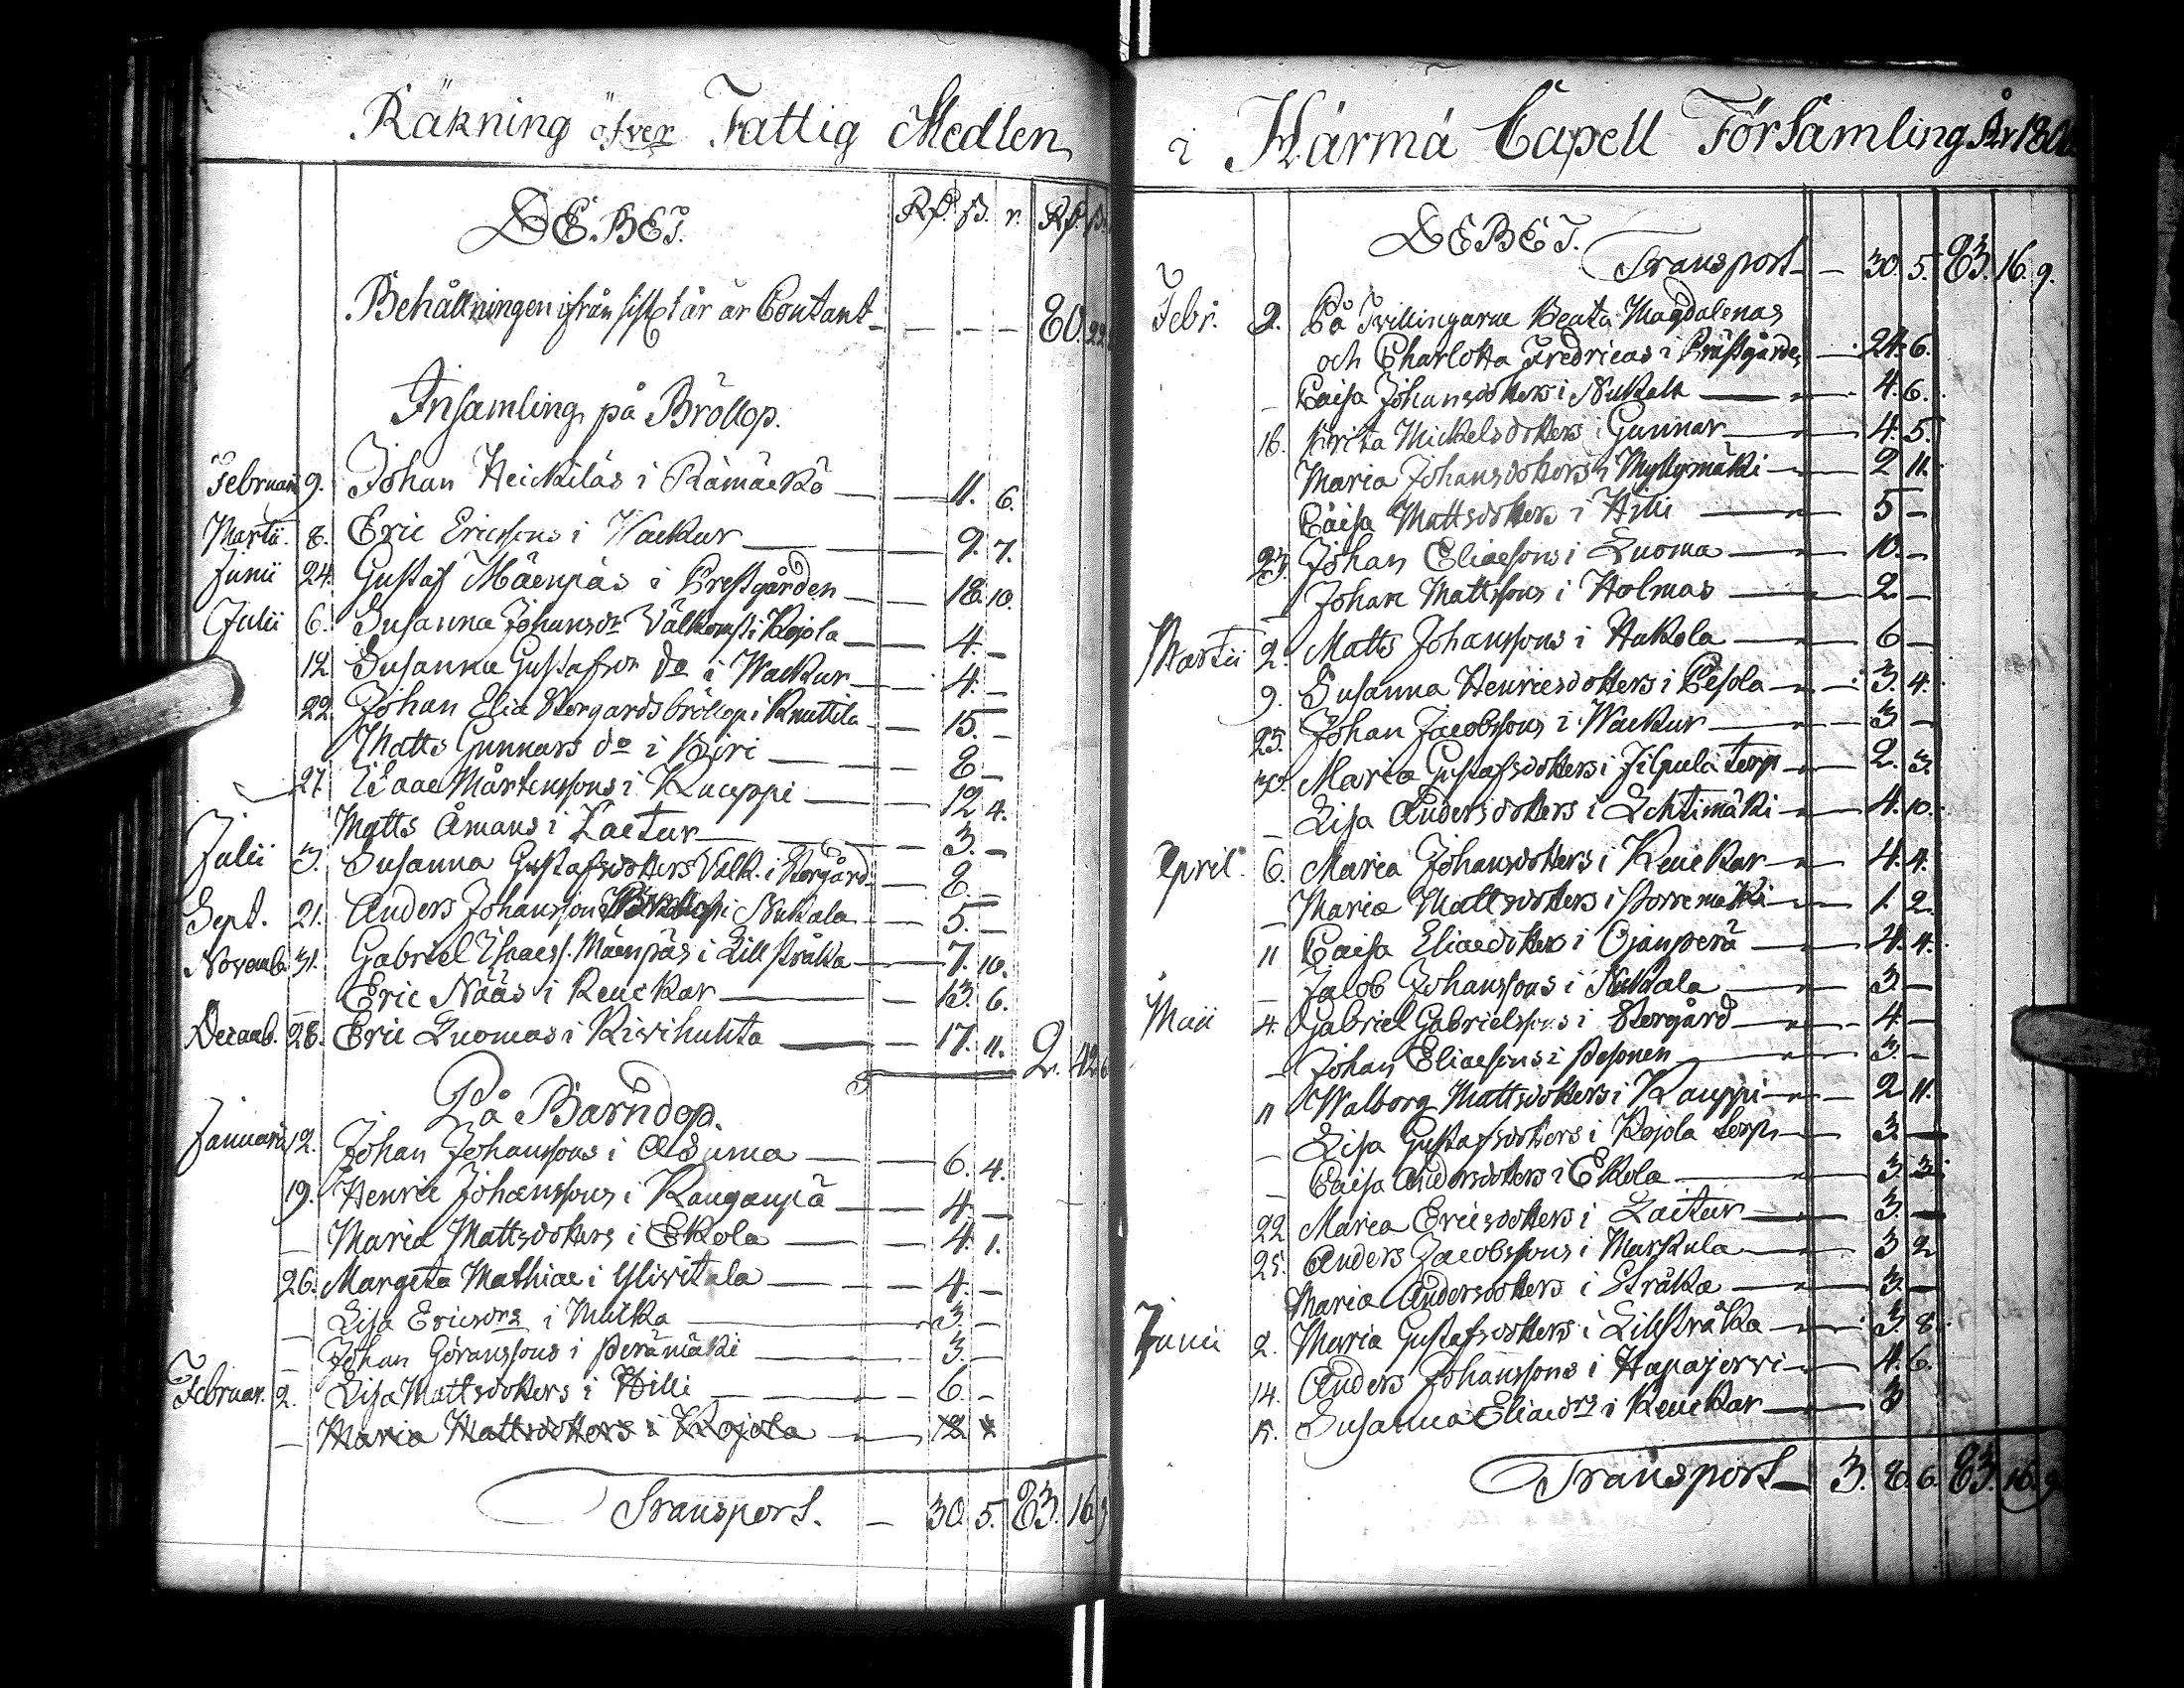 Räkning öfver Fattig Medlen
DEBET. Rd. ß. r. Rd. ß.
Behållningen ifrån sistl. år är Contant 80. 22.
Insamling på Bröllop.
Februarii 9. Johan Heickiläs i Rämäckö 11. 6.
Martii. 8. Eric Ericssons i Wackur 9. 7.
Junii 24. Gustaf Mäenpäs i Prestgården 18. 10.
Julii 6. Susanna Johansdr Välkomst i Kojola 4. -
12. Susanna Gustafsdr do i Wackur 4. -
22. Johan Elia Storgårds bröllop i Knuttila 15. -
Matts Gunnars do i Biri 8 -
27. Isaac Mårtenssons i Kauppi 12 4.
Matts Åmans i Laitur 3. -
Julii 3. Susanna Gustafsdotters Välk. i Storgård 8. -
Sept. 21. Anders Johanssons i Nukala 5. -
Novemb. 31. Gabriel Isaacss. Mäenpäs i Lillstråka 7. 10.
Eric Nääs i Keuckar 13. 6.
Decemb. 28. Eric Luomas i Kivihuhta 17. 11. 2. 42. 6
På Barndop.
Januarii 12. Johan Johanssons i Alduma 6. 4.
19. Henric Johanssons i Kanganpä 4. -
- Maria Mattsdotters i Ekola 4. 1.
26. Margeta Mathiae i Ylivitala 4. -
- Lisa Ericsdrs i Multka 3. -
- Johan Göranssons i Perämäki 3. -
Februar. 2. Lisa Mattsdotters i Hilli 6. -
- Maria Mattsdotters i Kojola 12 4
Transport. - 30. 5. 83. 16. 9
i Härmä Capell Församling År 180
DEBET.
Transport - 30. 5. 83. 16. 9.
Febr. 2. På Tvillingarne Beata Magdalenas
och Charlotta Fredricas i Prästgården 24. 6.
- Caisa Johansdotters i Nukala 4. 6.
16. Brita Mickelsdotters i Gunnar 4. 5.
Maria Johansdotters i Myllymäki 2 11.
Caisa Mattsdotters i Hilli 5 -
23. Johan Eliaessons i Luoma 10. -
- Johan Mattssons i Holmas 2 -
Martii 2. Matts Johanssons i Hakola 6 -
9. Susanna Henricsdotters i Pesola 3. 4.
25. Johan Jacobssons i Wackur 3 -
30. Maria Gustafsdotters i Jilpula torp 2. 3.
- Lisa Andersdotters i Lehtimäki 4. 10.
April. 6. Maria Johansdotters i Keuckar 4. 4.
- Maria Mattsdotters i Porremäki 1. 2.
11 Caisa Eliaedotters i Ojanperä 4. 4.
- Jacob Johanssons i Nukala 3. -
Maii 4. Gabriel Gabrielssons i Storgård 4. -
- Johan Eliaesons i Pesonen 3. -
11 Walborg Mattsdotters i Kauppi 2 11.
- Lisa Gustafsdotters i Kojola torp 3. -
- Caisa Andersdotters i Ekola 3. 3.
22 Maria Ericsdotters i Laitur 3. -
25. Anders Jacobssons i Markula 3 2
Maria Andersdotters i Stråka 3. -
Junii 2. Maria Gustafsdotters i Lillstråka 3. 8.
14. Anders Johanssons i Hapajervi 4. 6.
15. Susanna Eliaedrs i Keuckar 3
Transport 3. 8. 6. 83. 16. 9